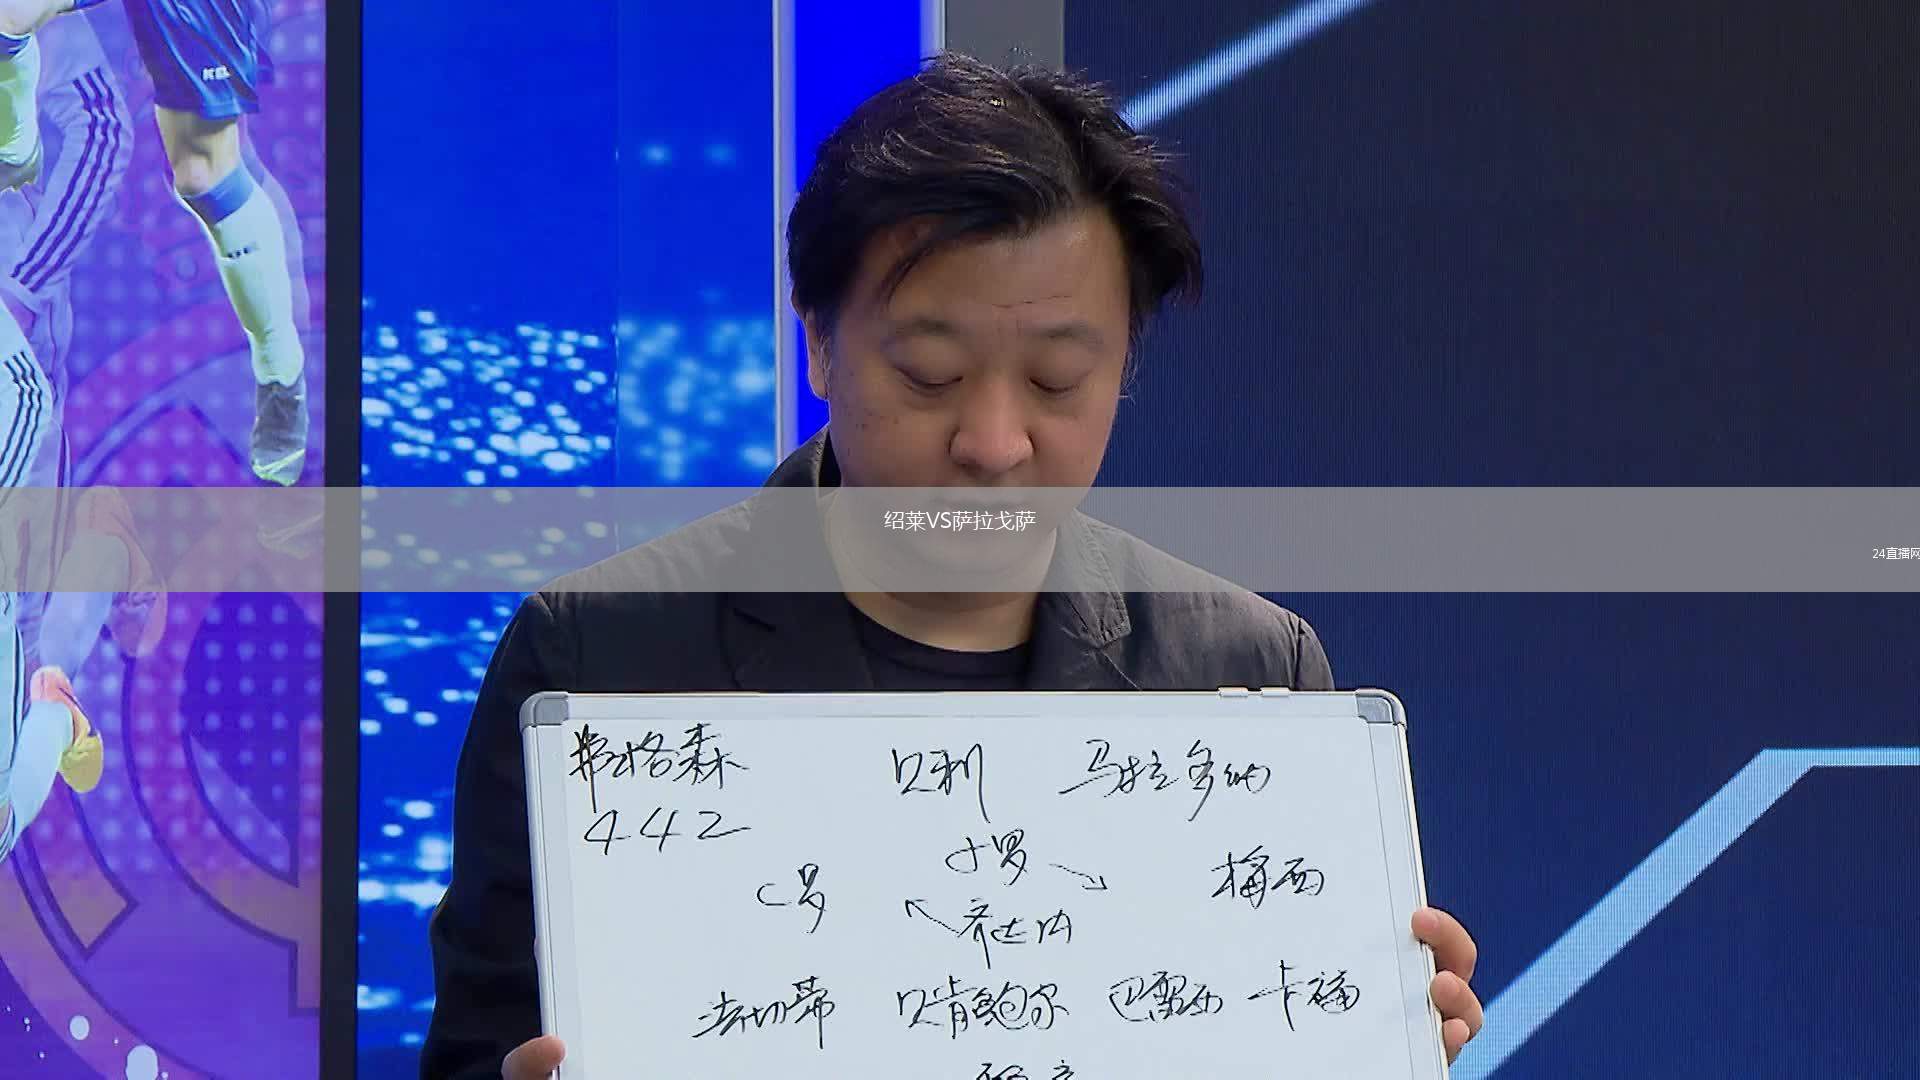 绍莱VS萨拉戈萨
24直播网
弗格森 贝利 马拉多纳
442
小罗
C罗 梅西
齐达内
法切蒂 贝肯鲍尔 巴雷西 卡福